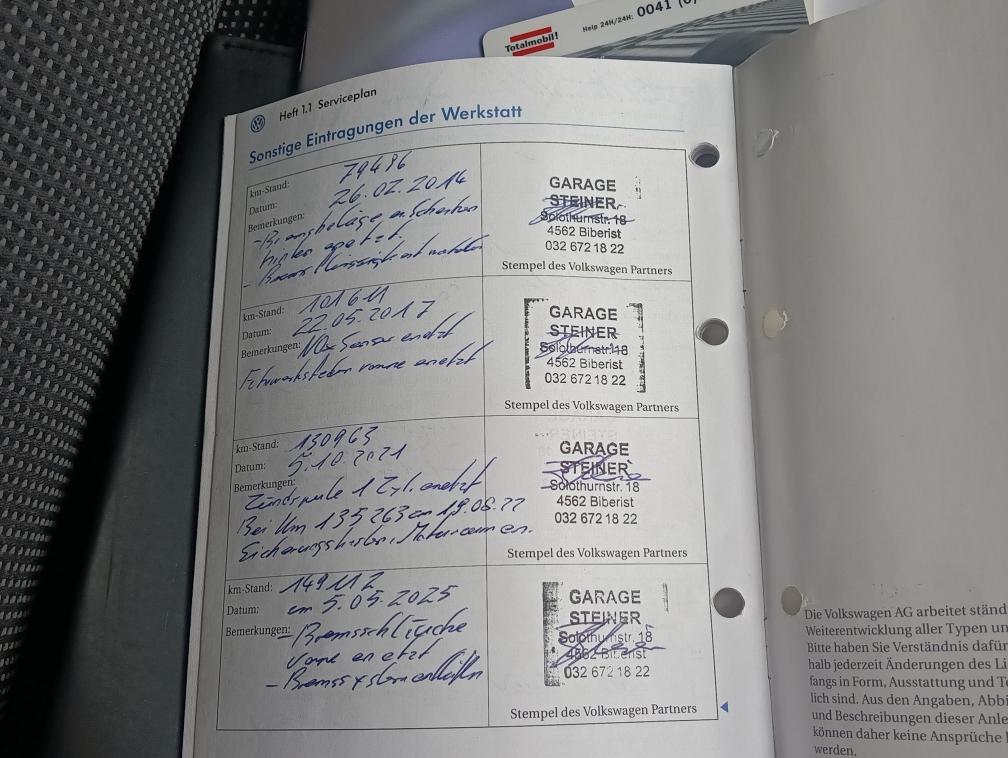 Totalmobil!
Help 24H/24H: 0041
Heft 1.1 Serviceplan
Sonstige Eintragungen der Werkstatt
km-Stand: 79486
Datum: 26.02.2014
Bemerkungen: - Bremsbeläge
hinten
- Bremsflüssigkeit
GARAGE
STEINER
Solothurnstr. 18
4562 Biberist
032 672 18 22
Stempel des Volkswagen Partners
km-Stand: 101611
Datum: 22.05.2017
Bemerkungen: NOx Sensor ersetzt
vorne ersetzt
GARAGE
STEINER
Solothurnstr. 18
4562 Biberist
032 672 18 22
Stempel des Volkswagen Partners
km-Stand: 130963
Datum: 5.10.2021
Bemerkungen:
Zündspule 1 Zyl. ersetzt
Bei Km 135263 am 19.08.22
GARAGE
STEINER
Solothurnstr. 18
4562 Biberist
032 672 18 22
Stempel des Volkswagen Partners
km-Stand: 149112
Datum: am 5.05.2025
Bemerkungen: - Bremsschläuche
vorne ersetzt
- Bremssystem entlüften
GARAGE
STEINER
Solothurnstr. 18
4562 Biberist
032 672 18 22
Stempel des Volkswagen Partners
Die Volkswagen AG arbeitet ständ
Weiterentwicklung aller Typen un
Bitte haben Sie Verständnis dafür
halb jederzeit Änderungen des Li
fangs in Form, Ausstattung und Te
lich sind. Aus den Angaben, Abbi
und Beschreibungen dieser Anle
können daher keine Ansprüche
werden.